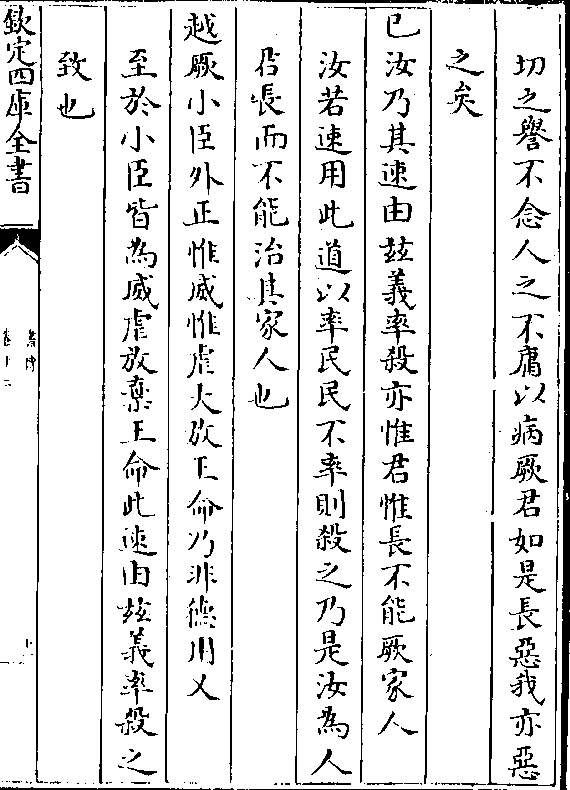 切之譽不念人之不庸以病厥君如是長惡我亦惡
之矣
已汝乃其速由玆義率殺亦惟君惟長不能厥家人
汝若速用此道以率民民不率則殺之乃是汝為人
君長而不能治其家人也
越厥小臣外正惟威惟虐大放王命乃非德用乂
至於小臣皆為威虐放棄王命此速由玆義率殺之
致也
欽定四庫全書